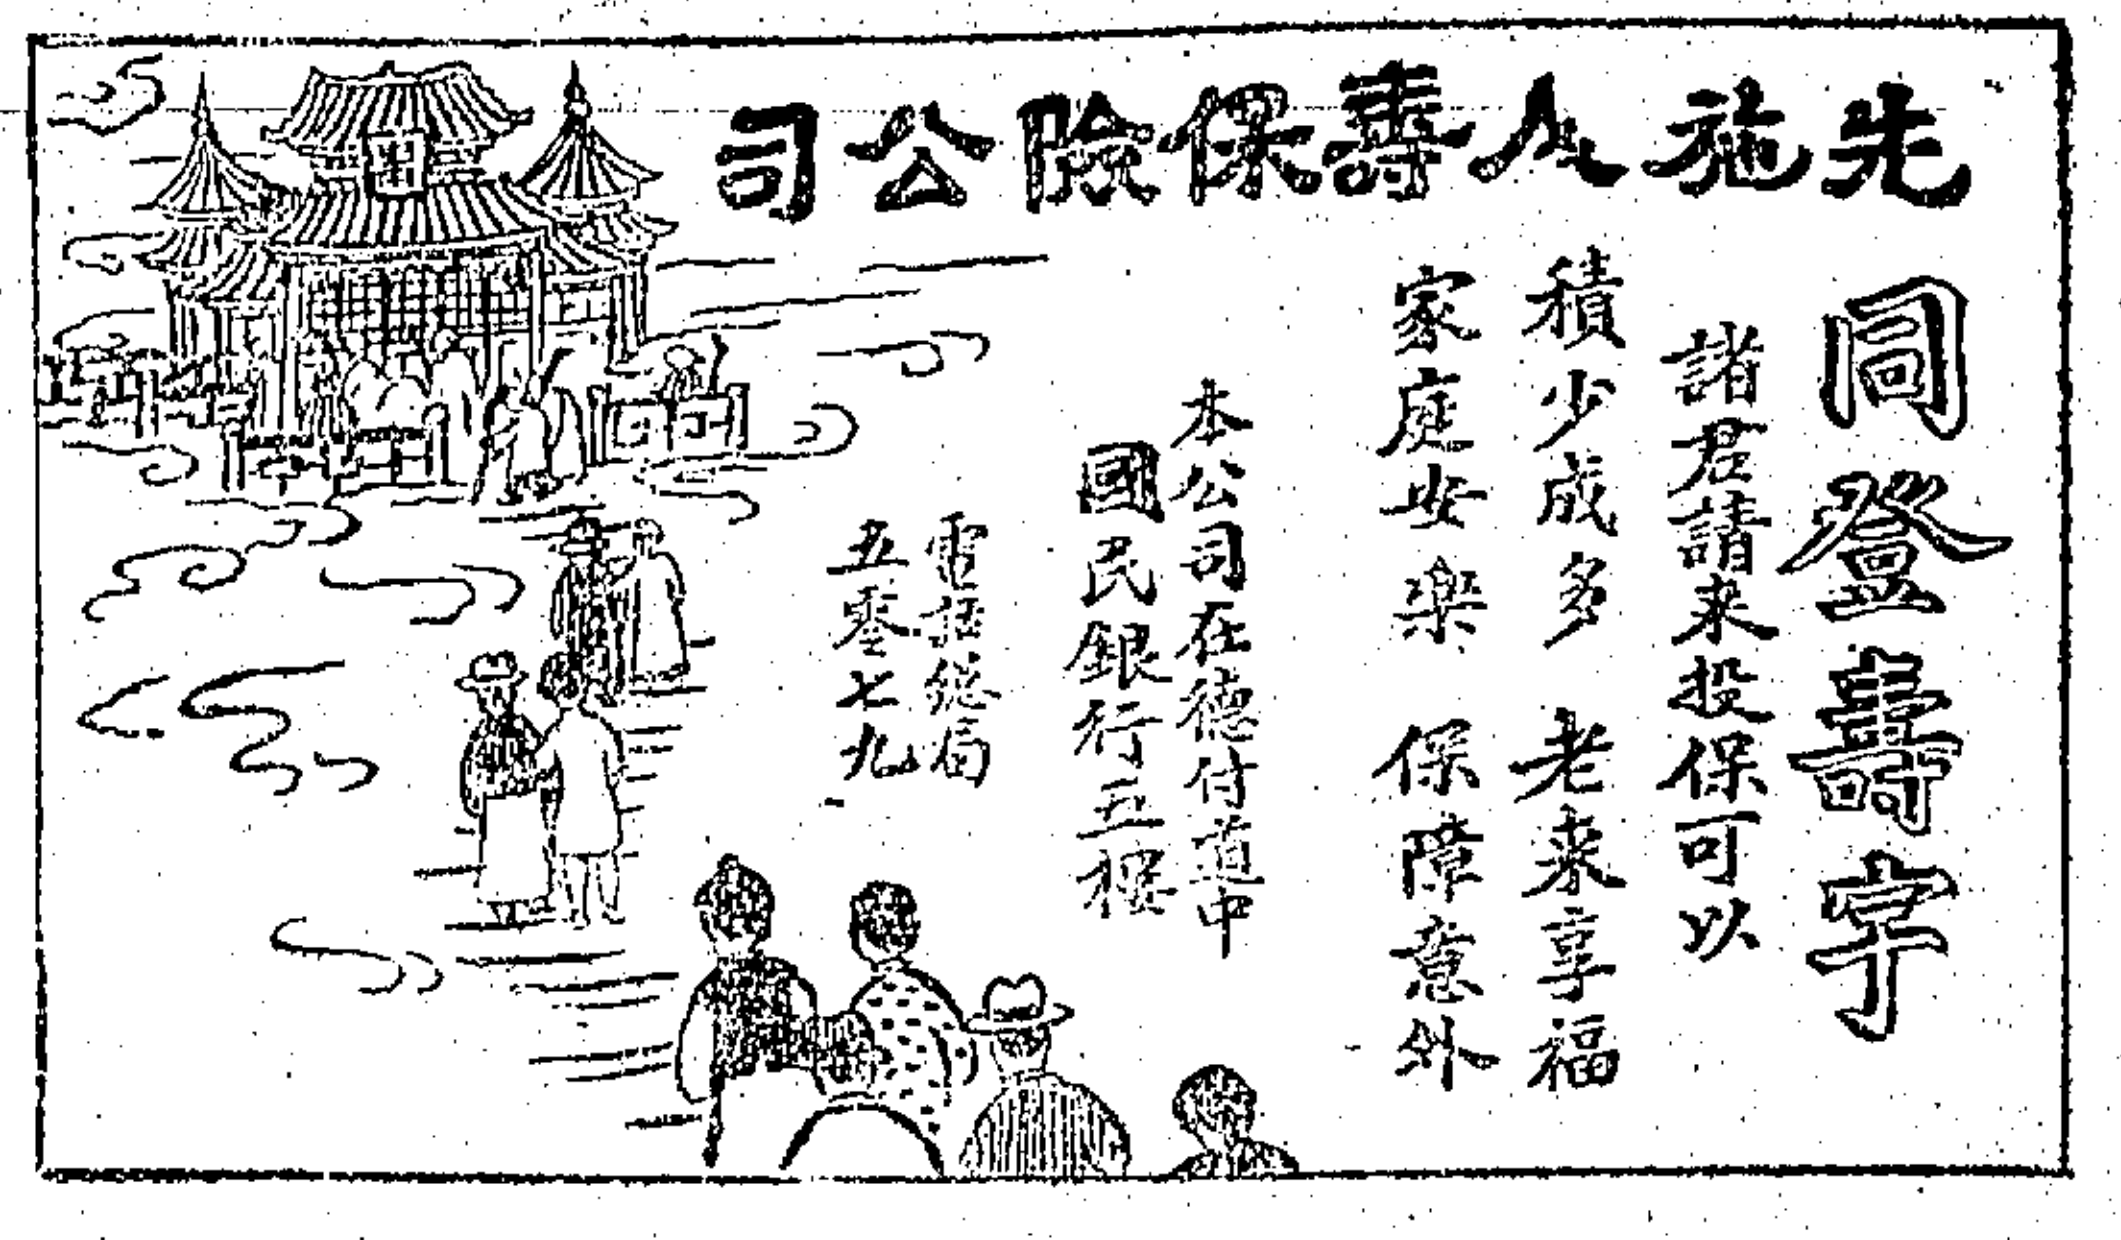 先施人壽保險公司
同登壽字
諸君請来投保可以
積少成多 老来享福
家庭安樂 保障意外
本公司在德付道中
國民銀行五樓
電話總局
五零七九
壽